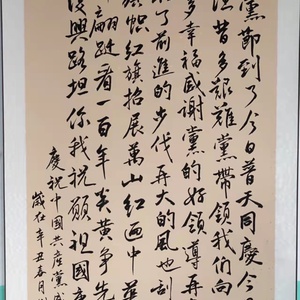 黨節到了今日普天同慶今
昔多艱難黨帶領我們向
多幸福感謝黨的好領導再
了前進的步伐再大的風也刮
幟紅旗招展萬山紅遍中華
翩躚看一百年炎黄争先
興路坦你我祝願祖國
慶祝中國共産黨成
歲在辛丑春月